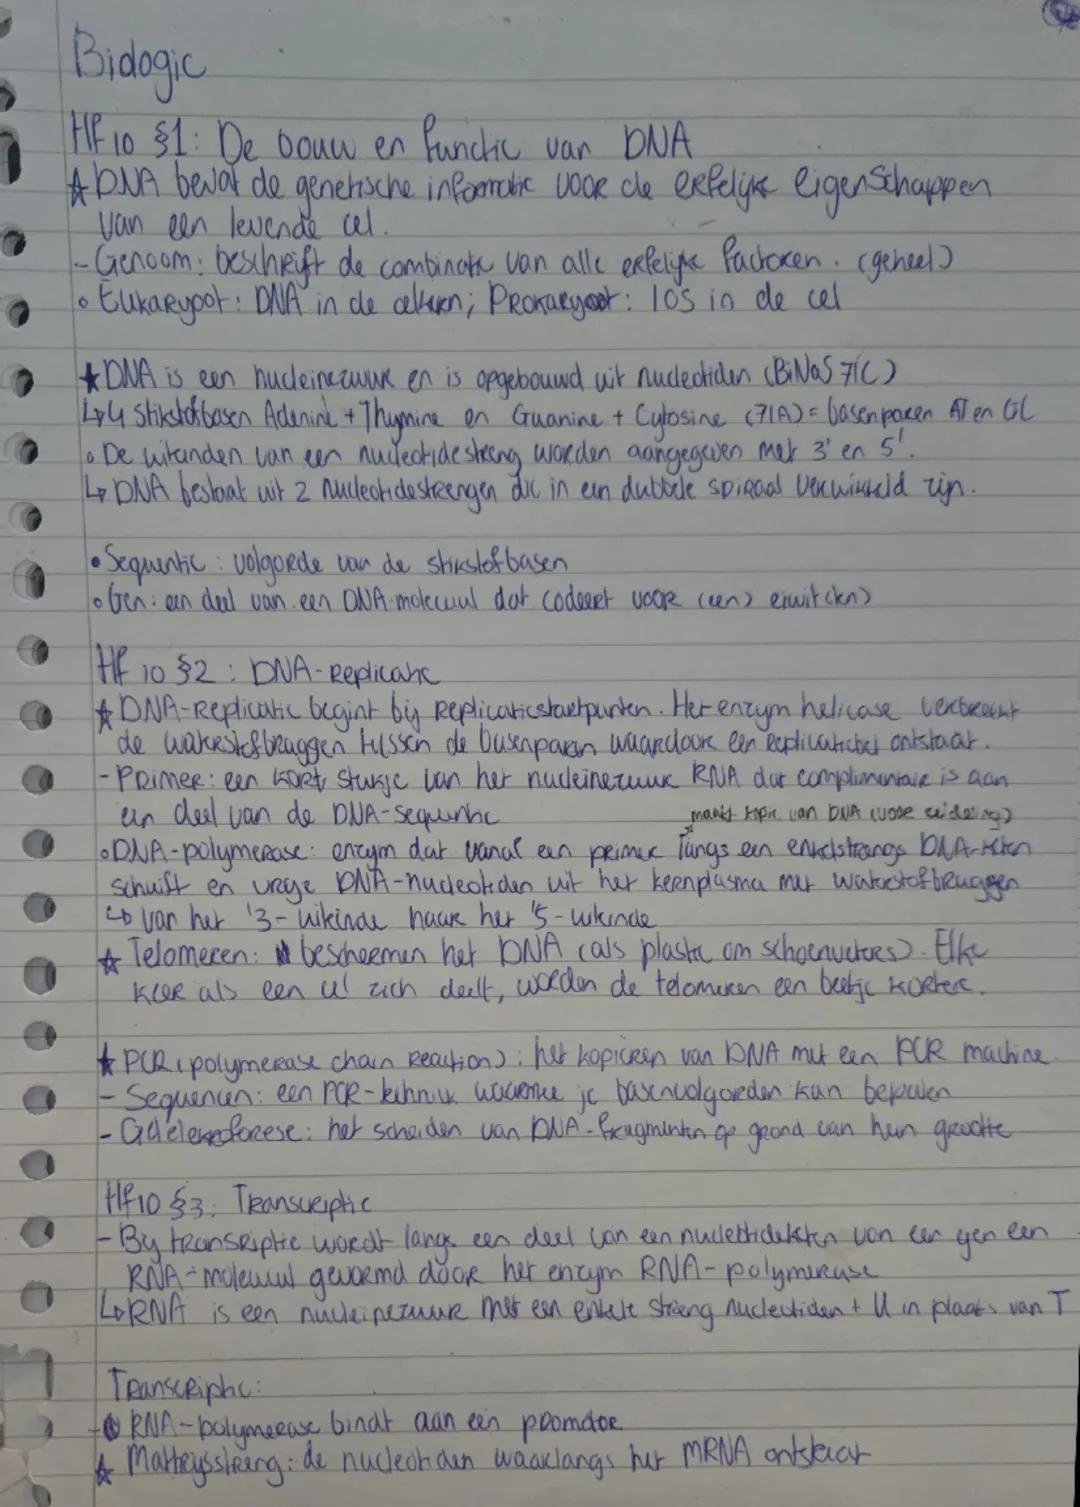 Biologie
Hf 10 §1: De bouw en functie van DNA
☆ DNA bevat de genetische informatie voor de erfelijke eigenschappen
van een levende cel.
- Genoom: beschrijft de combinatie van alle erfelijke factoren. (geheel)
• Eukaryoot: DNA in de celkern; Prokaryoot: los in de cel
★ DNA is een nucleïnezuur en is opgebouwd uit nucleotiden (BiNaS 71C)
↳ 4 stikstofbasen Adenine + Thymine en Guanine + Cytosine (71A) = basenparen AT en GC
• De uiteinden van een nucleotidestreng worden aangegeven met 3' en 5'.
↳ DNA bestaat uit 2 nucleotidestrengen die in een dubbele spiraal verwikkeld zijn.
• Sequentie: volgorde van de stikstofbasen
• Gen: een deel van een DNA-molecuul dat codeert voor (een) eiwit(ten)
Hf 10 §2: DNA-Replicatie
☆ DNA-Replicatie begint bij replicatiestartpunten. Het enzym helicase verbreekt
de waterstofbruggen tussen de basenparen waardoor een replicatiebel ontstaat.
- Primer: een kort stukje van het nucleïnezuur RNA dat complimentair is aan
een deel van de DNA-sequentie
maakt kopie van DNA (voor celdeling)
• DNA-polymerase: enzym dat vanaf een primer langs een enkelstrengs DNA-keten
schuift en vrije DNA-nucleotiden uit het kernplasma met waterstofbruggen
↳ van het '3-uiteinde naar het '5-uiteinde
☆ Telomeren: beschermen het DNA (als plastic om schoenveters). Elke
keer als een cel zich deelt, worden de telomeren een beetje korter.
★ PCR (polymerase chain reaction): het kopiëren van DNA met een PCR machine.
- Sequencen: een PCR-techniek waarmee je basenvolgorden kan bepalen
- Gelelektroforese: het scheiden van DNA-fragmenten op grond van hun grootte
Hf10 §3: Transcriptie
- Bij transcriptie wordt langs een deel van een nucleotideketen van een gen een
RNA-molecuul gevormd door het enzym RNA-polymerase
↳ RNA is een nucleïnezuur met een enkele streng nucleotiden + U in plaats van T
Transcriptie:
- RNA-polymerase bindt aan een promotor
☆ Matrijsstreng: de nucleotiden waarlangs het mRNA ontstaat